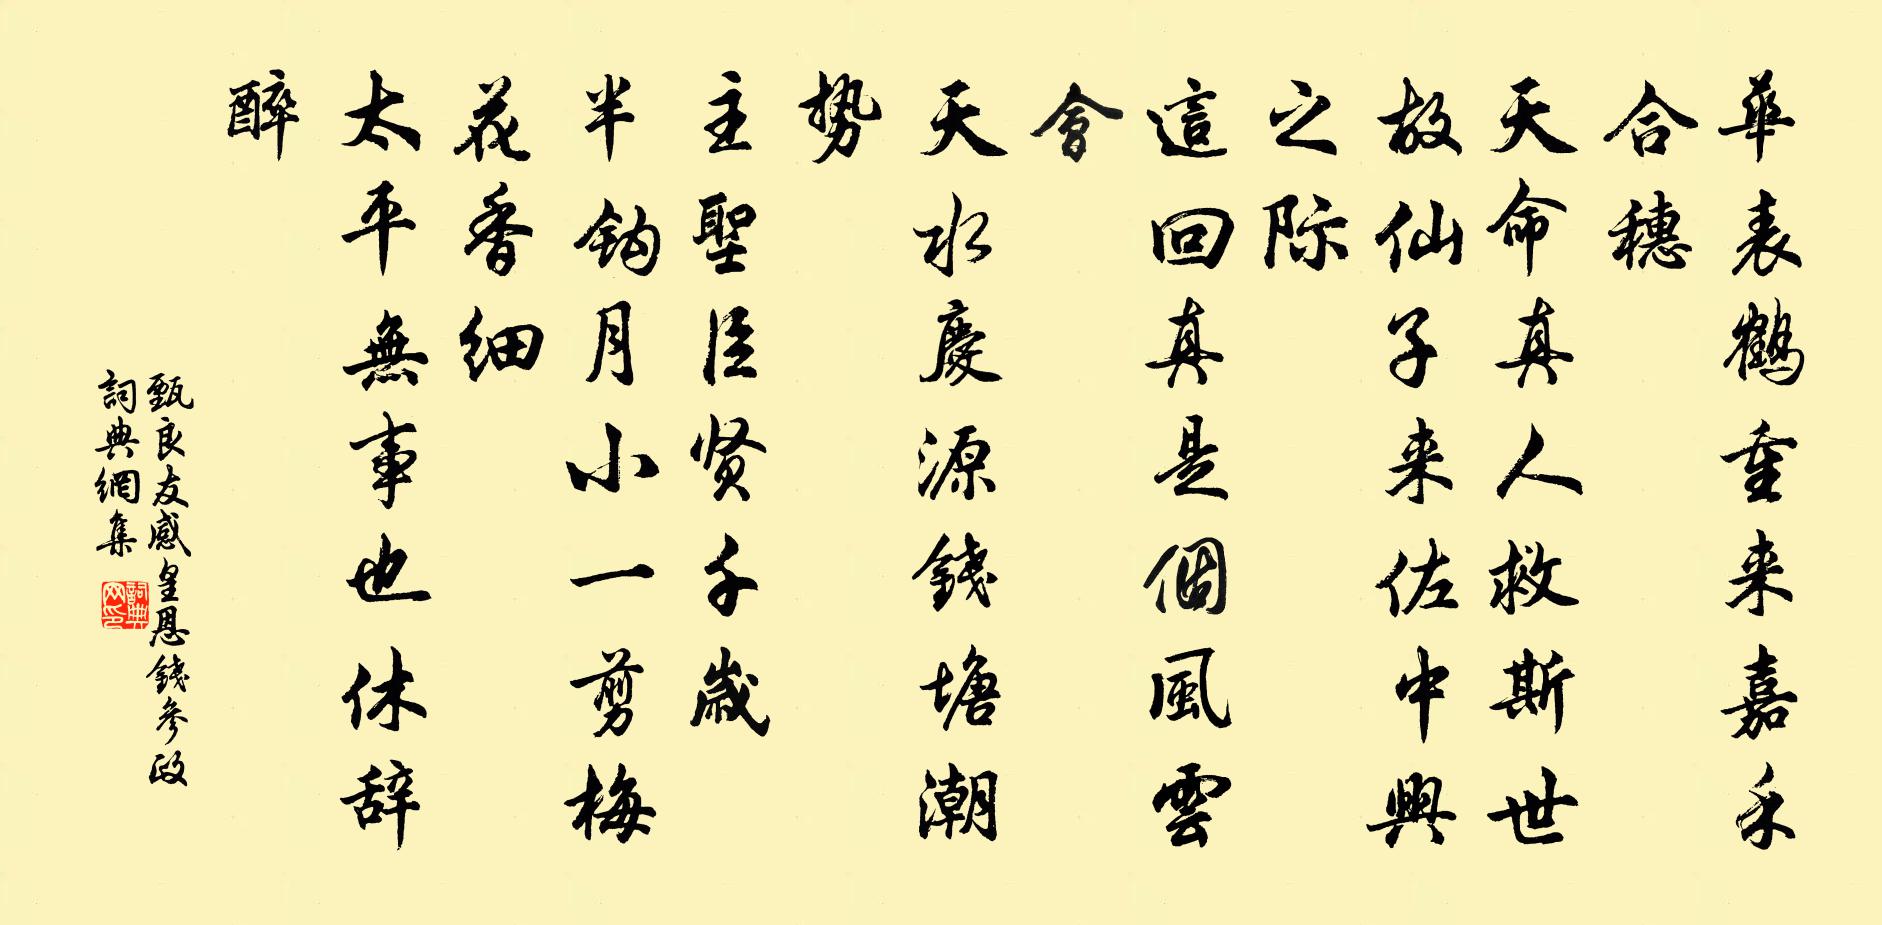 華表鶴重来嘉禾
合穗
天命真人救斯世
故仙子来佐中興
之际
這回真是個風雲
會
天水慶源錢塘潮
势
主聖臣贤千歲
半鈎月小一剪梅
花香细
太平無事也休辞
醉
甄良友感皇恩錢参政
詞典網集
詞典网印